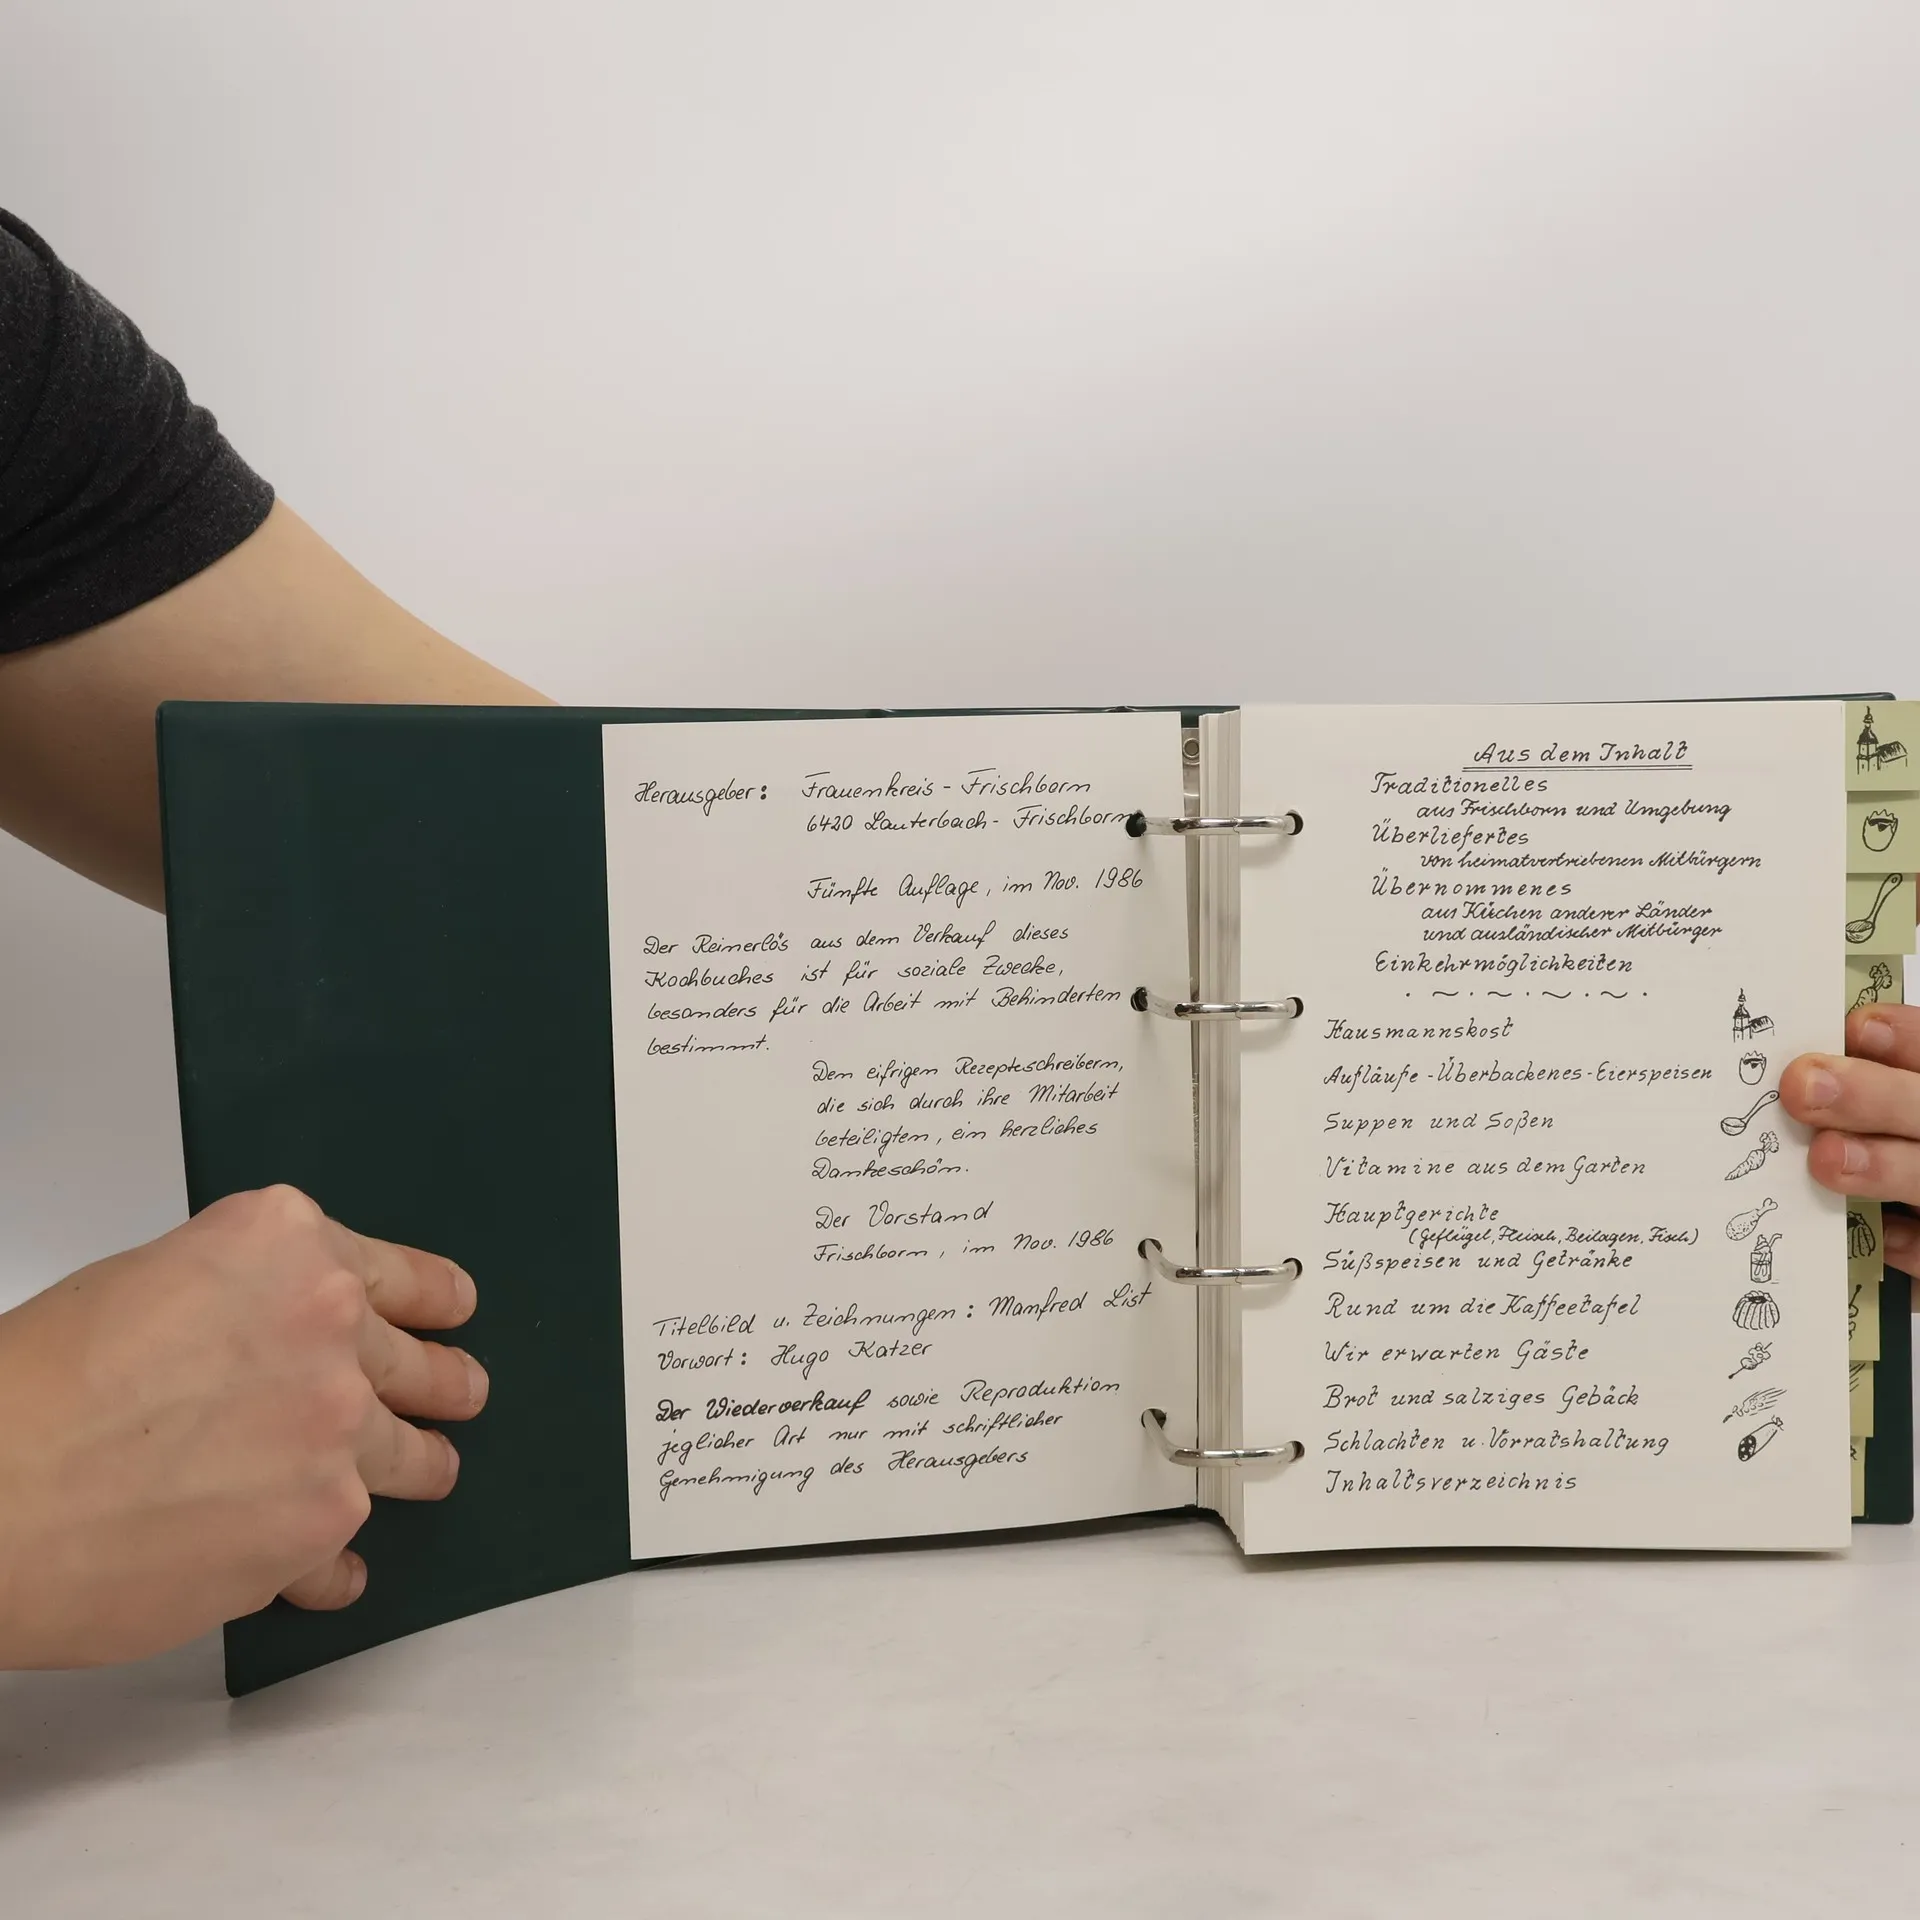 Herausgeber: Frauenkreis - Frischborn
6420 Lauterbach - Frischborn
Fünfte Auflage, im Nov. 1986
Der Reinerlös aus dem Verkauf dieses
Kochbuches ist für soziale Zwecke,
besonders für die Arbeit mit Behinderten
bestimmt.
Den eifrigen Rezepteschreibern,
die sich durch ihre Mitarbeit
beteiligten, ein herzliches
Dankeschön.
Der Vorstand
Frischborn, im Nov. 1986
Titelbild u. Zeichnungen: Manfred List
Vorwort: Hugo Katzer
Der Wiederverkauf sowie Reproduktion
jeglicher Art nur mit schriftlicher
Genehmigung des Herausgebers
Aus dem Inhalt
Traditionelles
aus Frischborn und Umgebung
Überliefertes
von heimatvertriebenen Mitbürgern
Übernommenes
aus Küchen anderer Länder
und ausländischer Mitbürger
Einkehrmöglichkeiten
Hausmannskost
Aufläufe - Überbackenes - Eierspeisen
Suppen und Soßen
Vitamine aus dem Garten
Hauptgerichte
(Geflügel, Fleisch, Beilagen, Fisch)
Süßspeisen und Getränke
Rund um die Kaffeetafel
Wir erwarten Gäste
Brot und salziges Gebäck
Schlachten u. Vorratshaltung
Inhaltsverzeichnis